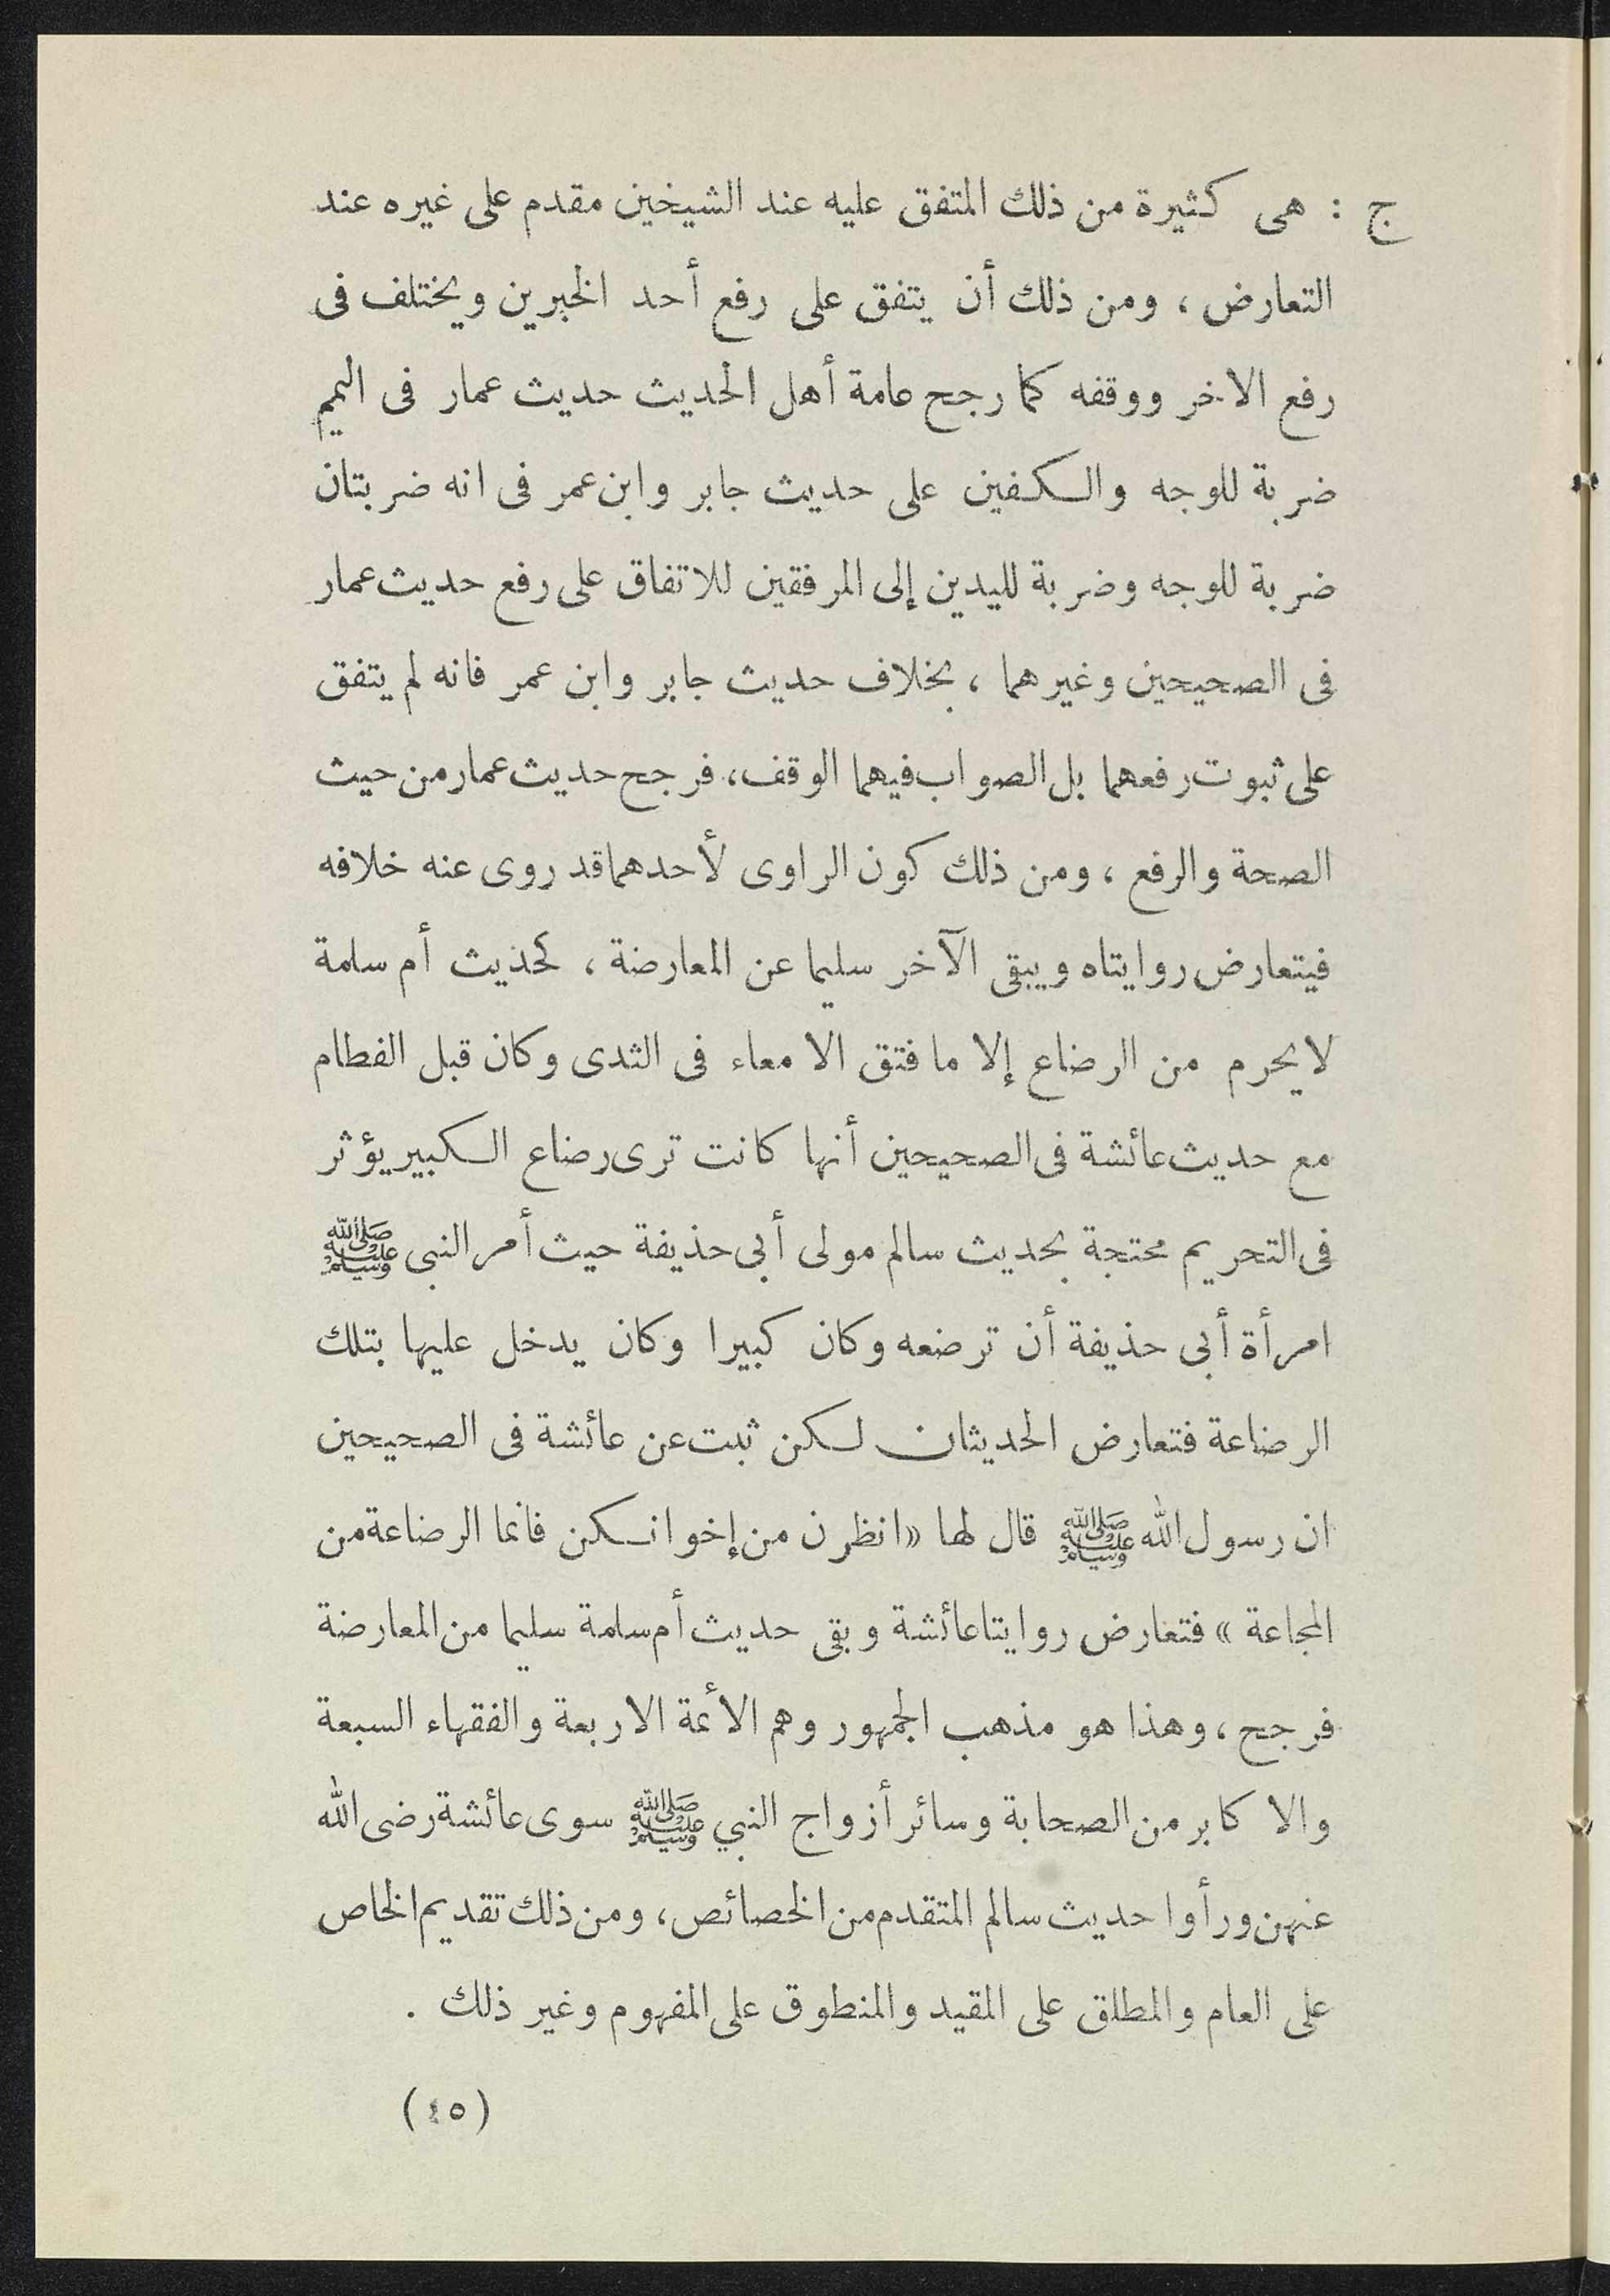 ج : هى كثيرة من ذلك المتفق عليه عند الشيخين مقدم على غيره عند
التعارض ، ومن ذلك أن يتفق على رفع أحد الخبرين ويختلف فى
رفع الاخر ووقفه كما رجح عامة أهل الحديث حديث عمار فى التيمم
ضربة للوجه والكفين على حديث جابر وابن عمر فى انه ضربتان
ضربة للوجه وضربة لليدين إلى المرفقين للاتفاق على رفع حديث عمار
فى الصحيحين وغيرهما ، بخلاف حديث جابر وابن عمر فانه لم يتفق
على ثبوت رفعهما بل الصواب فيهما الوقف، فرجح حديث عمار من حيث
الصحة والرفع ، ومن ذلك كون الراوى لأحدهما قد روى عنه خلافه
فيتعارض روايتاه ويبقى الآخر سليما عن المعارضة ، كحذيث أم سلمة
لا يحرم من الرضاع إلا ما فتق الامعاء فى الثدى وكان قبل الفطام
مع حديث عائشة فى الصحيحين أنها كانت ترى رضاع الكبير يؤثر
فى التحريم محتجة بحديث سالم مولى أبى حذيفة حيث أمر النبى ﷺ
امرأة أبى حذيفة أن ترضعه وكان كبيرا وكان يدخل عليها بتلك
الرضاعة فتعارض الحديثان لكن ثبت عن عائشة فى الصحيحين
ان رسول الله ﷺ قال لها « انظرن من إخوانكن فانما الرضاعة من
المجاعة » فتعارض روايتا عائشة وبقى حديث أم سلمة سليما من المعارضة
فرجح ، وهذا هو مذهب الجمهور وهم الأئمة الاربعة والفقهاء السبعة
والا كابر من الصحابة وسائر أزواج النبي ﷺ سوى عائشة رضى الله
عنهن ورأوا حديث سالم المتقدم من الخصائص، ومن ذلك تقديم الخاص
على العام والمطلق على المقيد والمنطوق على المفهوم وغير ذلك .
(٤٥)